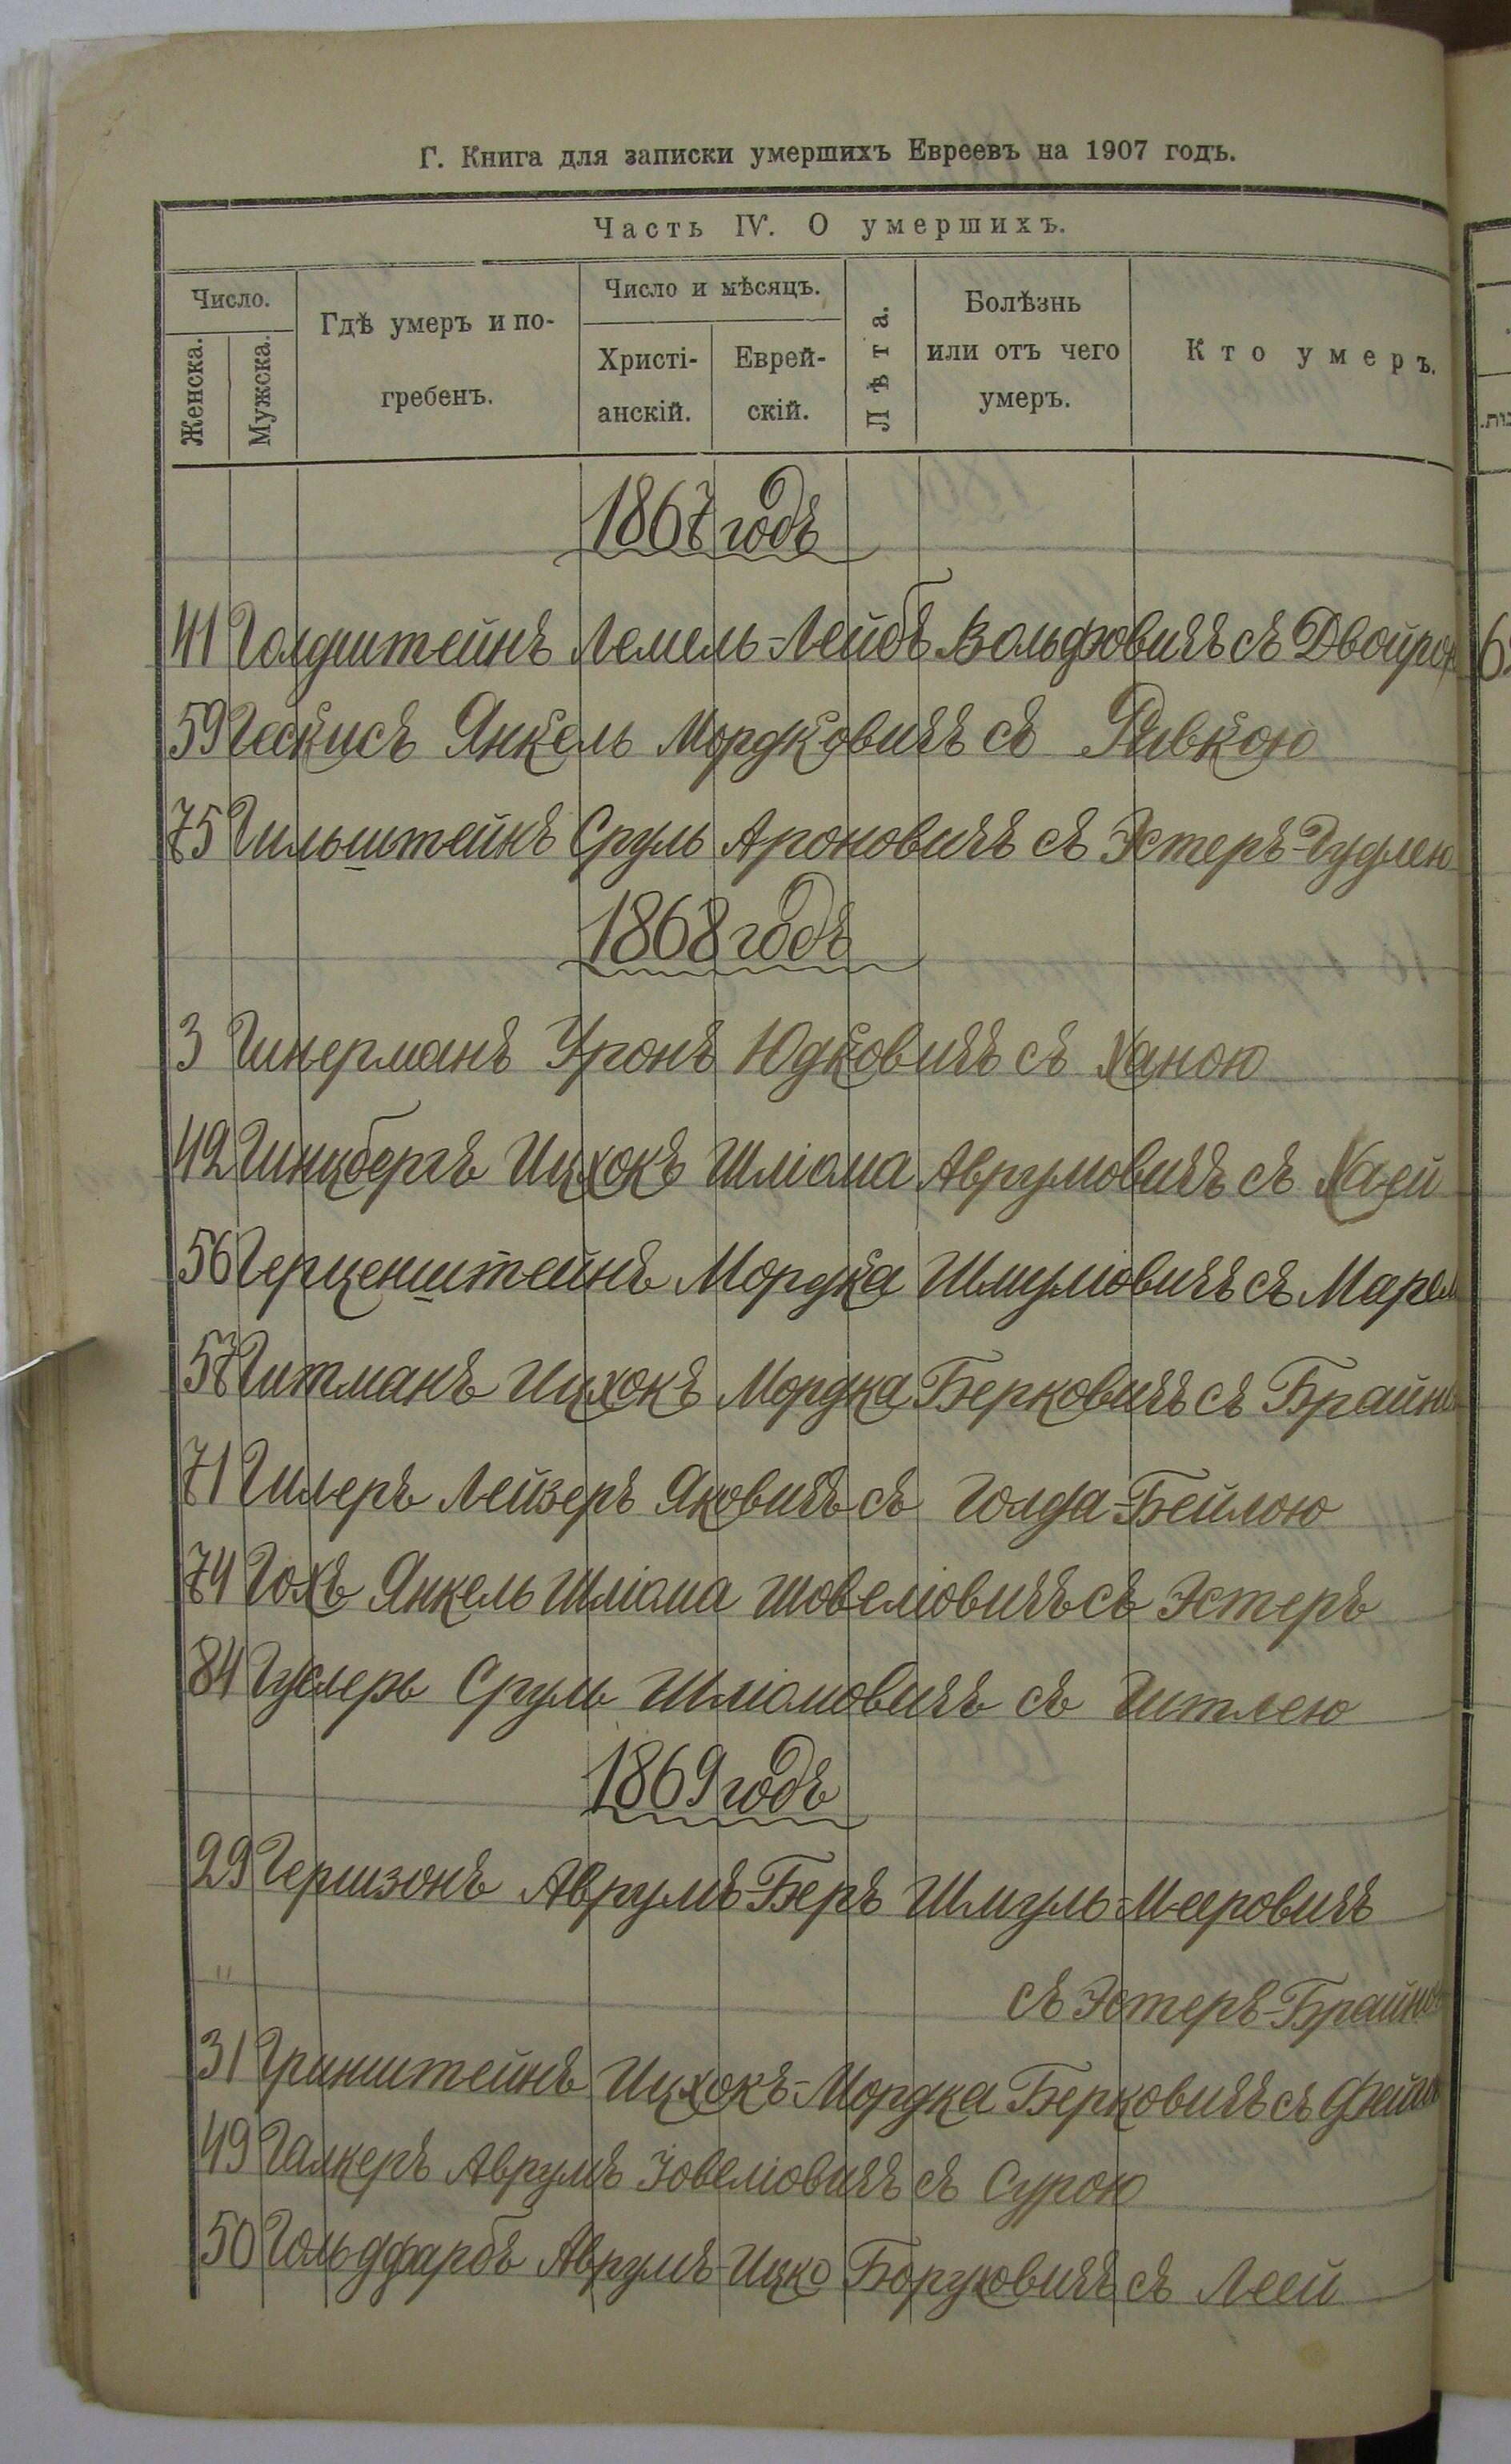 Г. Книга для записки умершихъ Евреевъ на 1907 годъ.
Часть IV. О умершихъ.
Число.
Женска.
Мужска.
Гдѣ умеръ и по-
гребенъ.
Число и мѣсяцъ.
Христі-
анскій.
Еврей-
скій.
Лѣта.
Болѣзнь
или отъ чего
умеръ.
Кто умеръ.
1867 годъ
41 Голдштейнъ Лемель-Лейбъ Вольфовичъ съ Двойрою
59 Гескисъ Янкель Мордковичъ съ Ривкою
75 Гильштейнъ Сруль Ароновичъ съ Эстеръ-Гудлею
1868 годъ
3 Гинерманъ Уронъ Юдковичъ съ Ханою
42 Гинцбергъ Ицхокъ Шліома Аврумовичъ съ Хаей
56 Герценштейнъ Мордка Шмуліовичъ съ
57 Гитманъ Ицхокъ Мордка Берковичъ съ
71 Гилеръ Лейзеръ Яковичъ съ Голда-Бейлою
74 Гохъ Янкель Шліома Шовеліовичъ съ Эстеръ
84 Сруль Шліомовичъ съ Гитлею
1869 годъ
29 Гершзонъ Аврумъ-Беръ Шмуль-Мееровичъ
" съ Эстеръ-Брайною
31 Гринштейнъ Ицхокъ-Мордка Берковичъ съ
49 Галкеръ Аврумъ Іовеліовичъ съ Сурою
50 Гольдфарбъ Аврумъ-Ицко Боруховичъ съ Леей